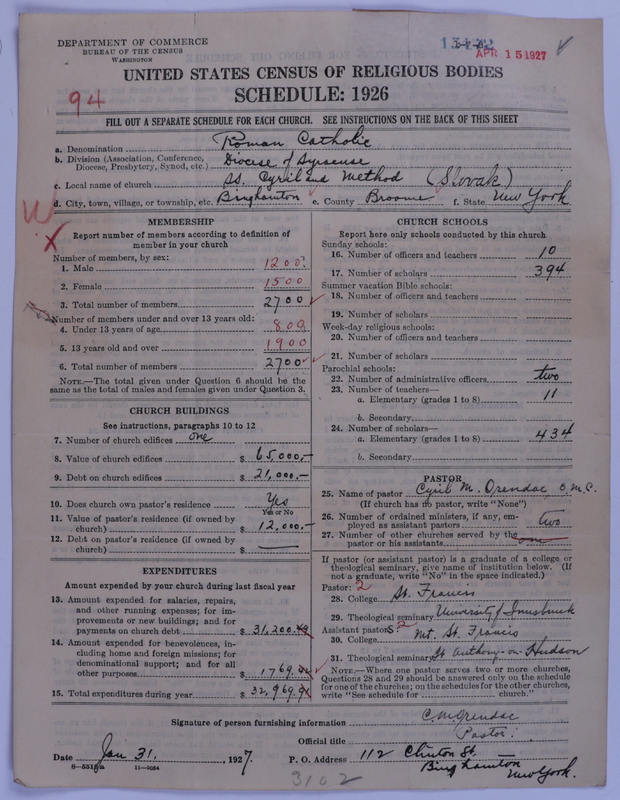 DEPARTMENT OF COMMERCE
BUREAU OF THE CENSUS
WASHINGTON
APR 15 1927
UNITED STATES CENSUS OF RELIGIOUS BODIES
SCHEDULE: 1926
94
FILL OUT A SEPARATE SCHEDULE FOR EACH CHURCH. SEE INSTRUCTIONS ON THE BACK OF THIS SHEET
a. Denomination Roman Catholic
b. Division (Association, Conference, Diocese, Presbytery, Synod, etc.) Diocese of Syracuse
c. Local name of church SS. Cyril and Method (Slovak)
d. City, town, village, or township, etc. Binghamton e. County Broome f. State New York
MEMBERSHIP
Report number of members according to definition of
member in your church
Number of members, by sex:
1. Male 1200
2. Female 1500
3. Total number of members 2700
Number of members under and over 13 years old:
4. Under 13 years of age 800
5. 13 years old and over 1900
6. Total number of members 2700
NOTE.—The total given under Question 6 should be the
same as the total of males and females given under Question 3.
CHURCH BUILDINGS
See instructions, paragraphs 10 to 12
7. Number of church edifices one
8. Value of church edifices $ 65,000,-
9. Debt on church edifices $ 21,000,-
10. Does church own pastor's residence Yes
Yes or No
11. Value of pastor's residence (if owned by
church) $ 12,000,-
12. Debt on pastor's residence (if owned by
church) $
EXPENDITURES
Amount expended by your church during last fiscal year
13. Amount expended for salaries, repairs,
and other running expenses; for im-
provements or new buildings; and for
payments on church debt $ 31,200.
14. Amount expended for benevolences, in-
cluding home and foreign missions; for
denominational support; and for all
other purposes $ 1769.
15. Total expenditures during year $ 32,969.
CHURCH SCHOOLS
Report here only schools conducted by this church
Sunday schools:
16. Number of officers and teachers 10
17. Number of scholars 394
Summer vacation Bible schools:
18. Number of officers and teachers
19. Number of scholars
Week-day religious schools:
20. Number of officers and teachers
21. Number of scholars
Parochial schools:
22. Number of administrative officers two
23. Number of teachers—
a. Elementary (grades 1 to 8) 11
b. Secondary
24. Number of scholars—
a. Elementary (grades 1 to 8) 434
b. Secondary
PASTOR
25. Name of pastor Cyril M. Orendac, O.M.C.
(If church has no pastor, write "None")
26. Number of ordained ministers, if any, em-
ployed as assistant pastors two
27. Number of other churches served by the
pastor or his assistants
If pastor (or assistant pastor) is a graduate of a college or
theological seminary, give name of institution below. (If
not a graduate, write "No" in the space indicated.)
Pastor: 2
28. College St. Francis
29. Theological seminary University of Innsbruck
Assistant pastors: 2
30. College Mt. St. Francis
31. Theological seminary St Anthony-on-Hudson
NOTE.—Where one pastor serves two or more churches,
Questions 28 and 29 should be answered only on the schedule
for one of the churches; on the schedules for the other churches,
write "See schedule for church."
Signature of person furnishing information C.M. Orendac
Official title Pastor.
Date Jan 31. 1927. P. O. Address 112 Clinton St.
Binghamton
New York.
11—9054
3102